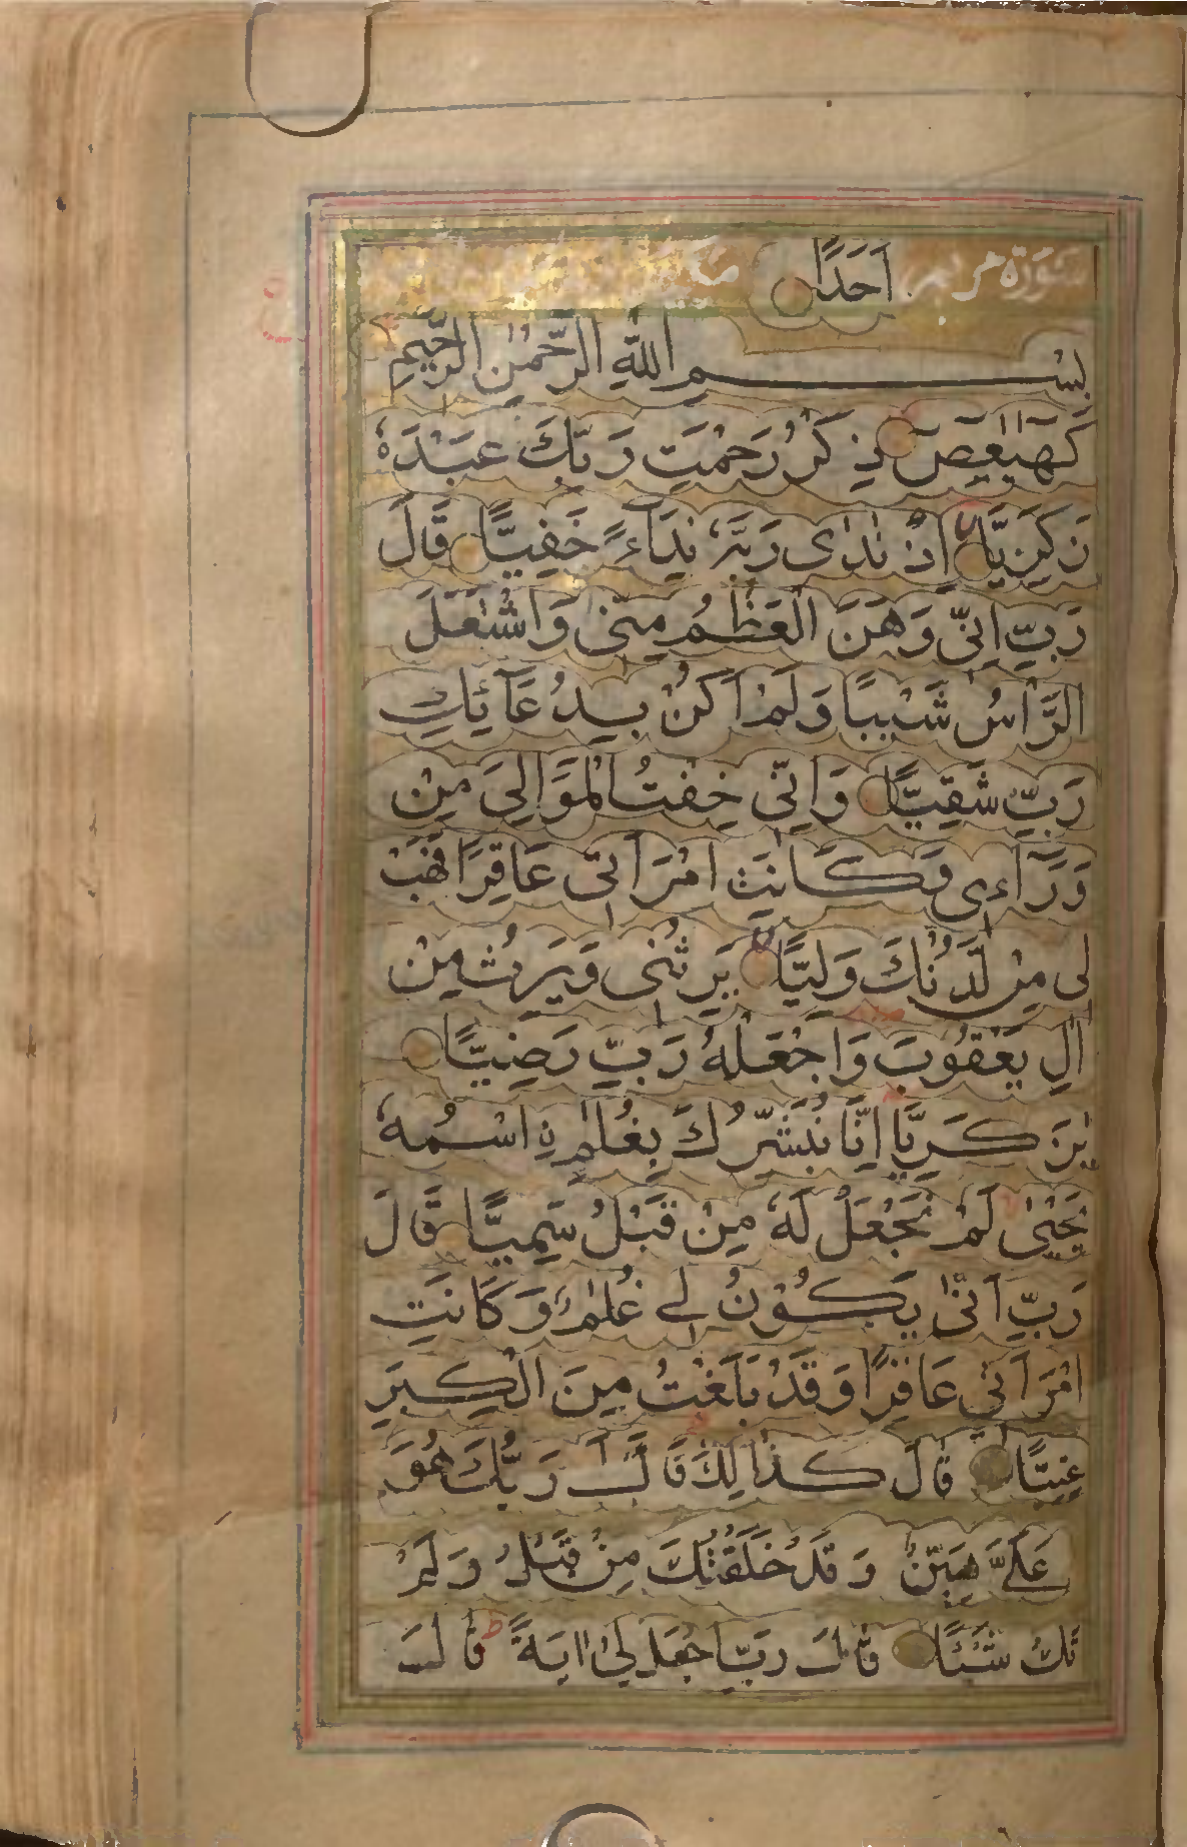 سورة مريم اَحَدًا
بِسْمِ اللّٰهِ الرَّحْمٰنِ الرَّحِيْمِ
كٓهٰيٰعٓصٓ ذِكْرُ رَحْمَتِ رَبِّكَ عَبْدَهٗ
زَكَرِيَّا اِذْ نَادٰى رَبَّهٗ نِدَآءً خَفِيًّا قَالَ
رَبِّ اِنِّيْ وَهَنَ الْعَظْمُ مِنِّيْ وَاشْتَعَلَ
الرَّاْسُ شَيْبًا وَلَمْ اَكُنْ بِدُعَآئِكَ
رَبِّ شَقِيًّا وَاِنِّيْ خِفْتُ الْمَوَالِيَ مِنْ
وَّرَآءِيْ وَكَانَتْ امْرَاَتِيْ عَاقِرًا فَهَبْ
لِيْ مِنْ لَّدُنْكَ وَلِيًّا يَّرِثُنِيْ وَيَرِثُ مِنْ
اٰلِ يَعْقُوْبَ وَاجْعَلْهُ رَبِّ رَضِيًّا
يٰزَكَرِيَّا اِنَّا نُبَشِّرُكَ بِغُلٰمِ نِ اسْمُهٗ
يَحْيٰى لَمْ نَجْعَلْ لَهٗ مِنْ قَبْلُ سَمِيًّا قَالَ
رَبِّ اَنّٰى يَكُوْنُ لِيْ غُلٰمٌ وَكَانَتِ
امْرَاَتِيْ عَاقِرًا وَقَدْ بَلَغْتُ مِنَ الْكِبَرِ
عِتِيًّا قَالَ كَذٰلِكَ قَالَ رَبُّكَ هُوَ
عَلَيَّ هَيِّنٌ وَقَدْ خَلَقْتُكَ مِنْ قَبْلُ وَلَمْ
تَكُ شَيْئًا قَالَ رَبِّ اجْعَلْ لِّيْ اٰيَةً قَالَ